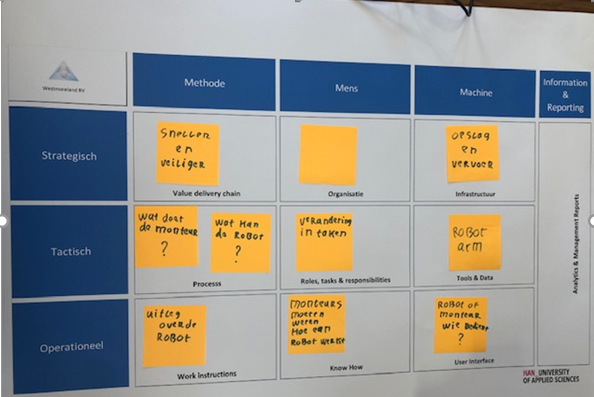 Westmoreland RV
Methode
Mens
Machine
Information
&
Reporting
Strategisch
Sneller
en
veiliger
Value delivery chain
Organisatie
opslag
en
vervoer
Infrastructuur
Tactisch
Wat doet
de monteur
?
Wat kan
de robot
?
Processs
verandering
in taken
Roles, tasks & responsibilities
Robot
arm
Tools & Data
Operationeel
uitleg
over de
Robot
Work instructions
monteurs
moeten
weten
Hoe een
Robot werkt
Know How
Robot of
monteur
wie bedient
?
User Interface
Analytics & Management Reports
HAN_UNIVERSITY
OF APPLIED SCIENCES